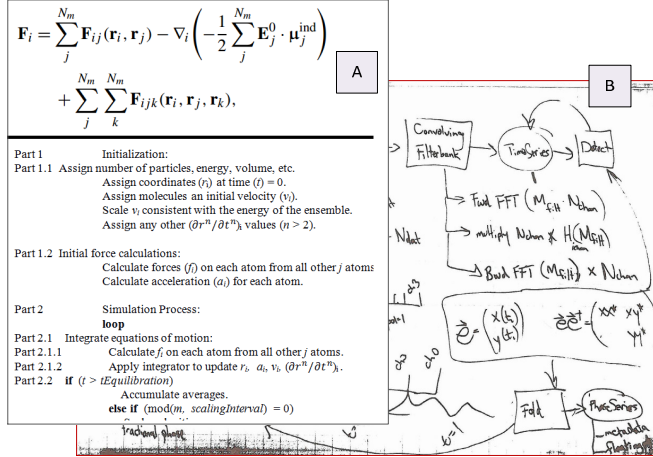 F_i = \sum_j^{N_m} F_{ij}(r_i, r_j) − ∇_i ( −\frac{1}{2} \sum_j^{N_m} E_j^0 · μ_j^{ind} )
+ \sum_j^{N_m} \sum_k^{N_m} F_{ijk}(r_i, r_j, r_k),
A
Part 1 Initialization:
Part 1.1 Assign number of particles, energy, volume, etc.
Assign coordinates (r_i) at time (t) = 0.
Assign molecules an initial velocity (v_i).
Scale v_i consistent with the energy of the ensemble.
Assign any other (∂r^n/∂t^n)_i values (n > 2).
Part 1.2 Initial force calculations:
Calculate forces (f_i) on each atom from all other j atoms
Calculate acceleration (a_i) for each atom.
Part 2 Simulation Process:
loop
Part 2.1 Integrate equations of motion:
Part 2.1.1 Calculate f_i on each atom from all other j atoms.
Part 2.1.2 Apply integrator to update r_i, a_i, v_i, (∂r^n/∂t^n)_i.
Part 2.2 if (t > tEquilibration)
Accumulate averages.
else if (mod(m, scalingInterval) = 0)
B
Convolving
Filterbank
TimeSeries
Detect
Fwd FFT (M_filt) · Nchan
multiply Nchan × H(M_filt)
Nchan
Bwd FFT (M_filt) × Nchan
Ndat
ch0
e = ( x(t_i)
y(t_i) )
e e^† = ( xx* xy*
yy*
Fold
PhaseSeries
metadata
floating
fractional phase